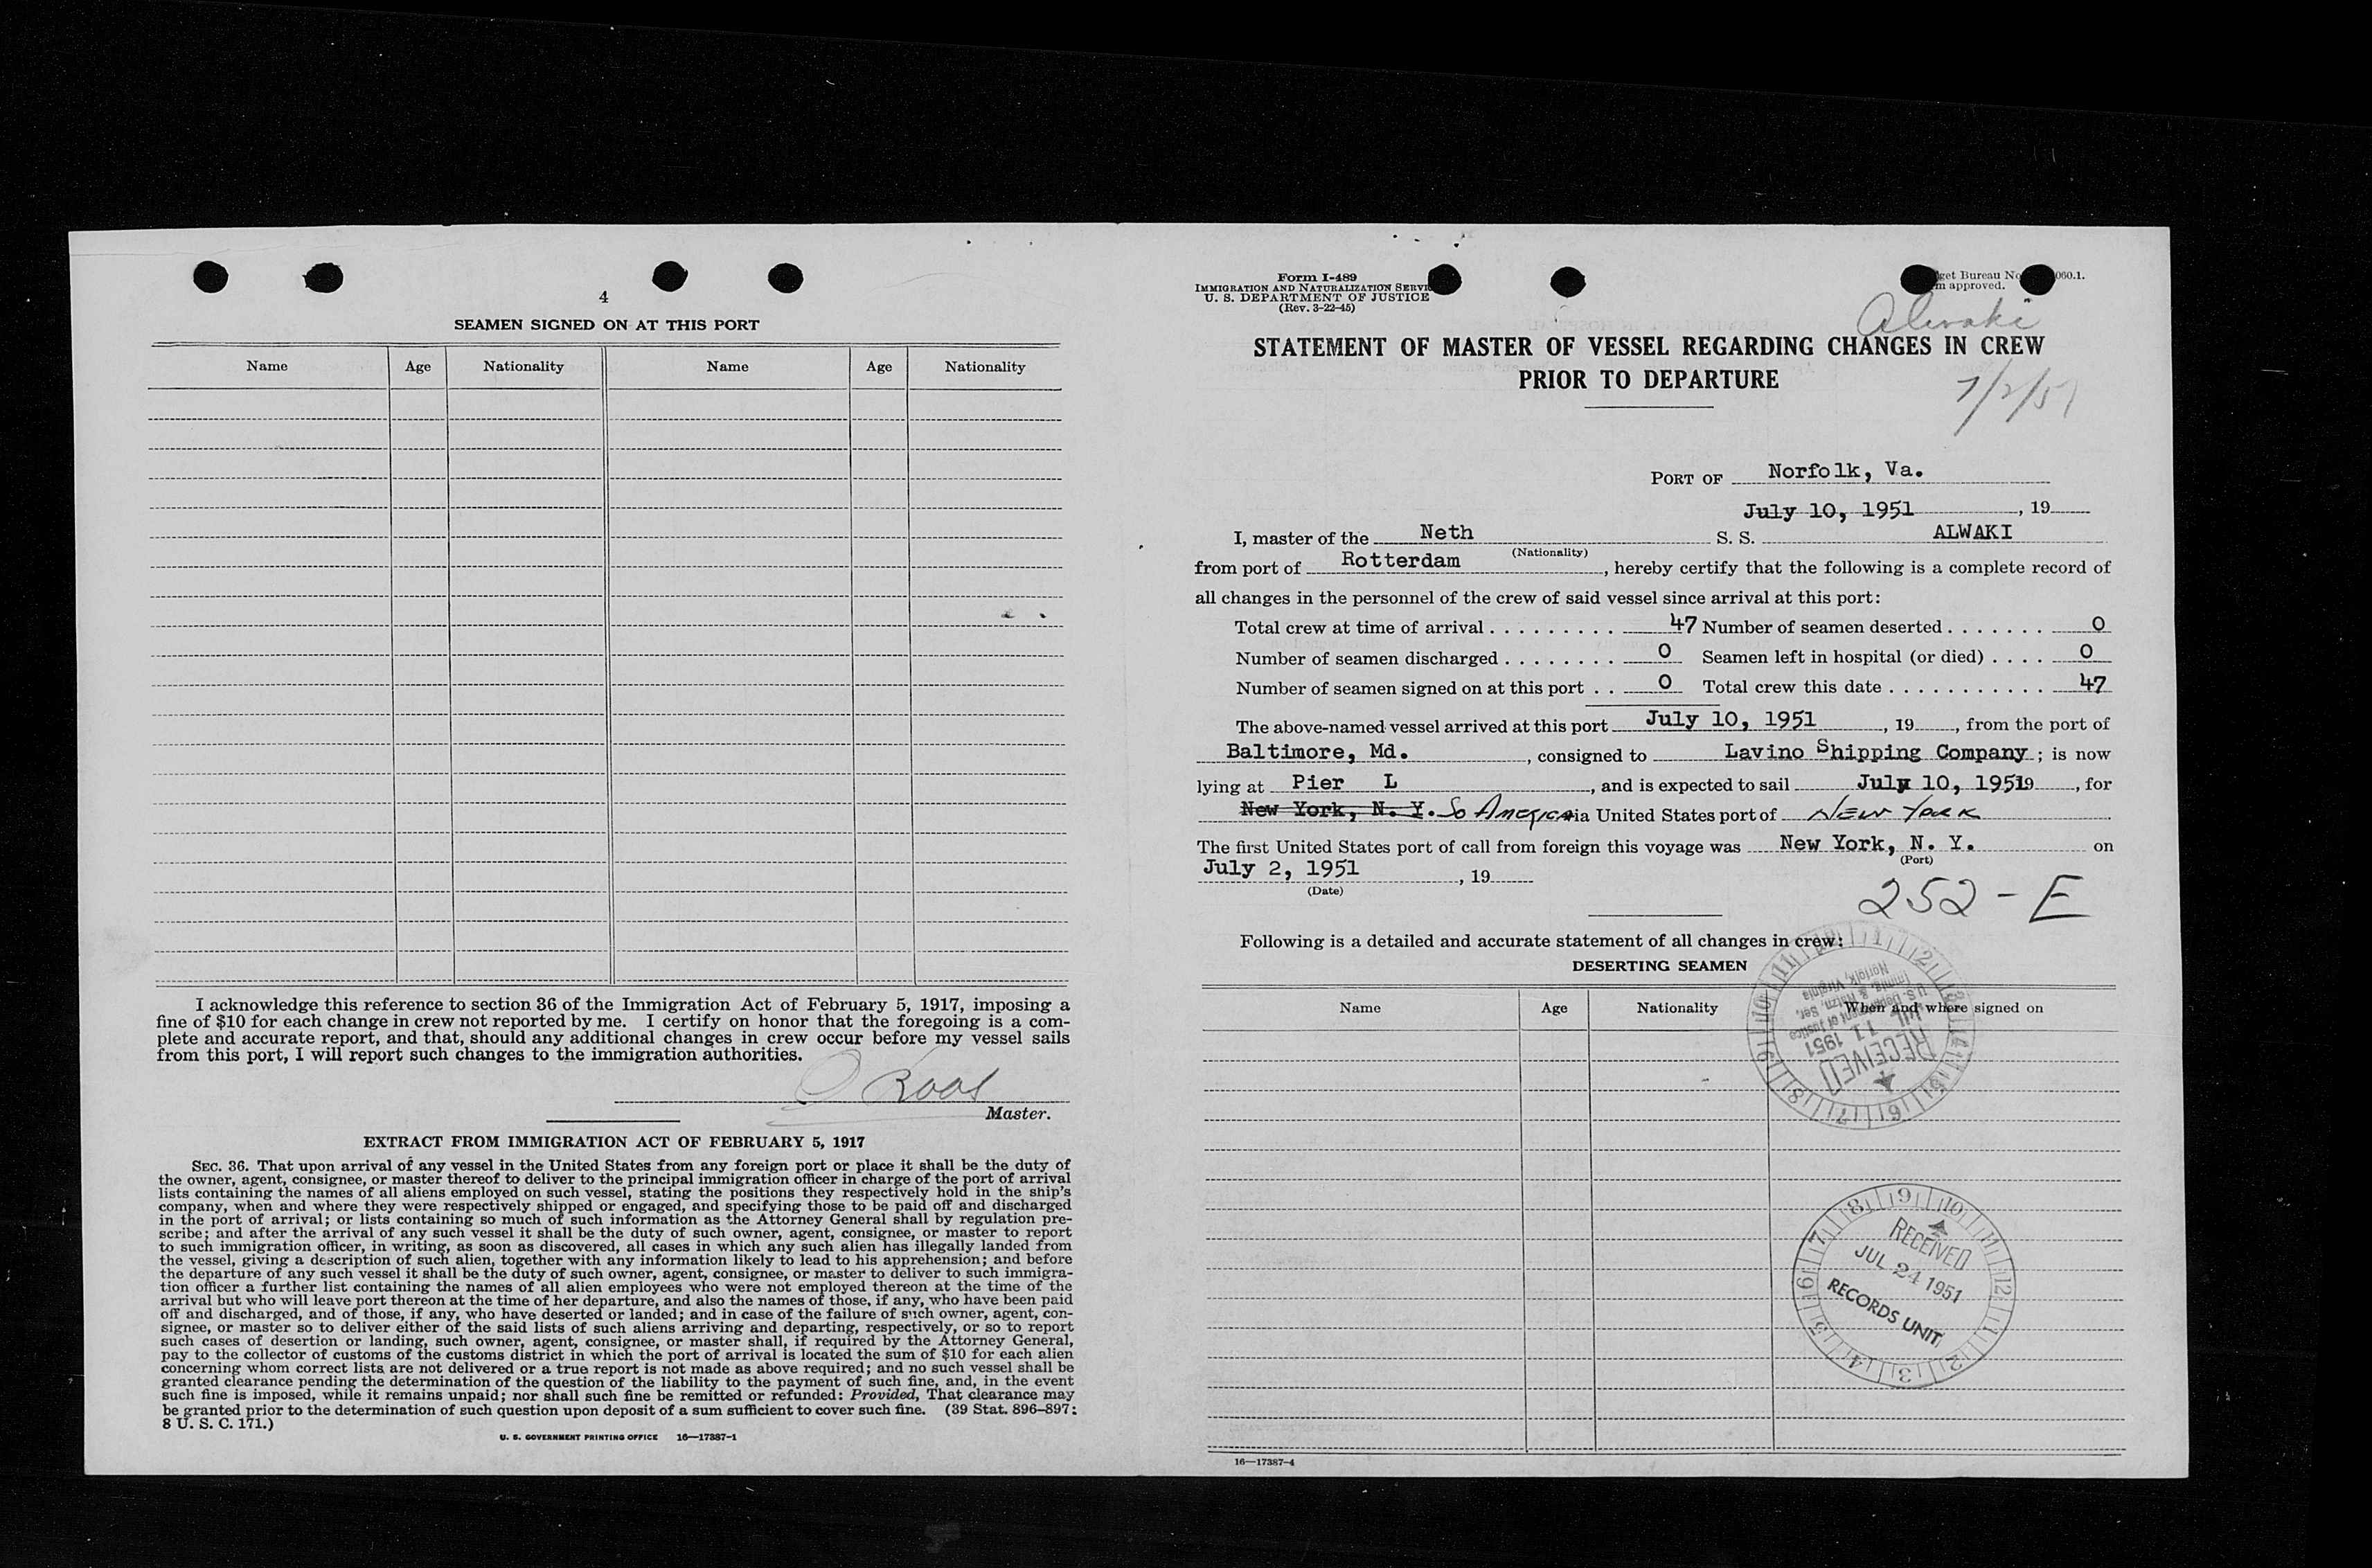 4
SEAMEN SIGNED ON AT THIS PORT
Name Age Nationality Name Age Nationality
I acknowledge this reference to section 36 of the Immigration Act of February 5, 1917, imposing a
fine of $10 for each change in crew not reported by me. I certify on honor that the foregoing is a com-
plete and accurate report, and that, should any additional changes in crew occur before my vessel sails
from this port, I will report such changes to the immigration authorities.
Roos
Master.
EXTRACT FROM IMMIGRATION ACT OF FEBRUARY 5, 1917
SEC. 36. That upon arrival of any vessel in the United States from any foreign port or place it shall be the duty of
the owner, agent, consignee, or master thereof to deliver to the principal immigration officer in charge of the port of arrival
lists containing the names of all aliens employed on such vessel, stating the positions they respectively hold in the ship's
company, when and where they were respectively shipped or engaged, and specifying those to be paid off and discharged
in the port of arrival; or lists containing so much of such information as the Attorney General shall by regulation pre-
scribe; and after the arrival of any such vessel it shall be the duty of such owner, agent, consignee, or master to report
to such immigration officer, in writing, as soon as discovered, all cases in which any such alien has illegally landed from
the vessel, giving a description of such alien, together with any information likely to lead to his apprehension; and before
the departure of any such vessel it shall be the duty of such owner, agent, consignee, or master to deliver to such immigra-
tion officer a further list containing the names of all alien employees who were not employed thereon at the time of the
arrival but who will leave port thereon at the time of her departure, and also the names of those, if any, who have been paid
off and discharged, and of those, if any, who have deserted or landed; and in case of the failure of such owner, agent, con-
signee, or master so to deliver either of the said lists of such aliens arriving and departing, respectively, or so to report
such cases of desertion or landing, such owner, agent, consignee, or master shall, if required by the Attorney General,
pay to the collector of customs of the customs district in which the port of arrival is located the sum of $10 for each alien
concerning whom correct lists are not delivered or a true report is not made as above required; and no such vessel shall be
granted clearance pending the determination of the question of the liability to the payment of such fine, and, in the event
such fine is imposed, while it remains unpaid; nor shall such fine be remitted or refunded: Provided, That clearance may
be granted prior to the determination of such question upon deposit of a sum sufficient to cover such fine. (39 Stat. 896–897;
8 U. S. C. 171.)
U. S. GOVERNMENT PRINTING OFFICE 16—17387-1
Form I-489
IMMIGRATION AND NATURALIZATION SERVI
U. S. DEPARTMENT OF JUSTICE
(Rev. 3-22-45)
get Bureau No 060.1.
m approved.
Alwaki
STATEMENT OF MASTER OF VESSEL REGARDING CHANGES IN CREW
PRIOR TO DEPARTURE
7/2/51
PORT OF Norfolk, Va.
July 10, 1951, 19
I, master of the Neth S. S. ALWAKI
(Nationality)
from port of Rotterdam, hereby certify that the following is a complete record of
all changes in the personnel of the crew of said vessel since arrival at this port:
Total crew at time of arrival 47 Number of seamen deserted 0
Number of seamen discharged 0 Seamen left in hospital (or died) 0
Number of seamen signed on at this port 0 Total crew this date 47
The above-named vessel arrived at this port July 10, 1951, 19, from the port of
Baltimore, Md., consigned to Lavino Shipping Company; is now
lying at Pier L, and is expected to sail July 10, 195119, for
New York, N. Y. So America via United States port of NEW YORK
The first United States port of call from foreign this voyage was New York, N. Y. on
(Port)
July 2, 1951, 19
(Date)
252-E
Following is a detailed and accurate statement of all changes in crew:
DESERTING SEAMEN
Name Age Nationality When and where signed on
RECEIVED
JUL 11 1951
U.S. Department of Justice
Immig. & Natzn. Ser.
Norfolk, Virginia
1 2 3 4 5 6 7 8 9 10 11 12
RECEIVED
JUL 24 1951
RECORDS UNIT
1 2 3 4 5 6 7 8 9 10 11 12
16—17387-4